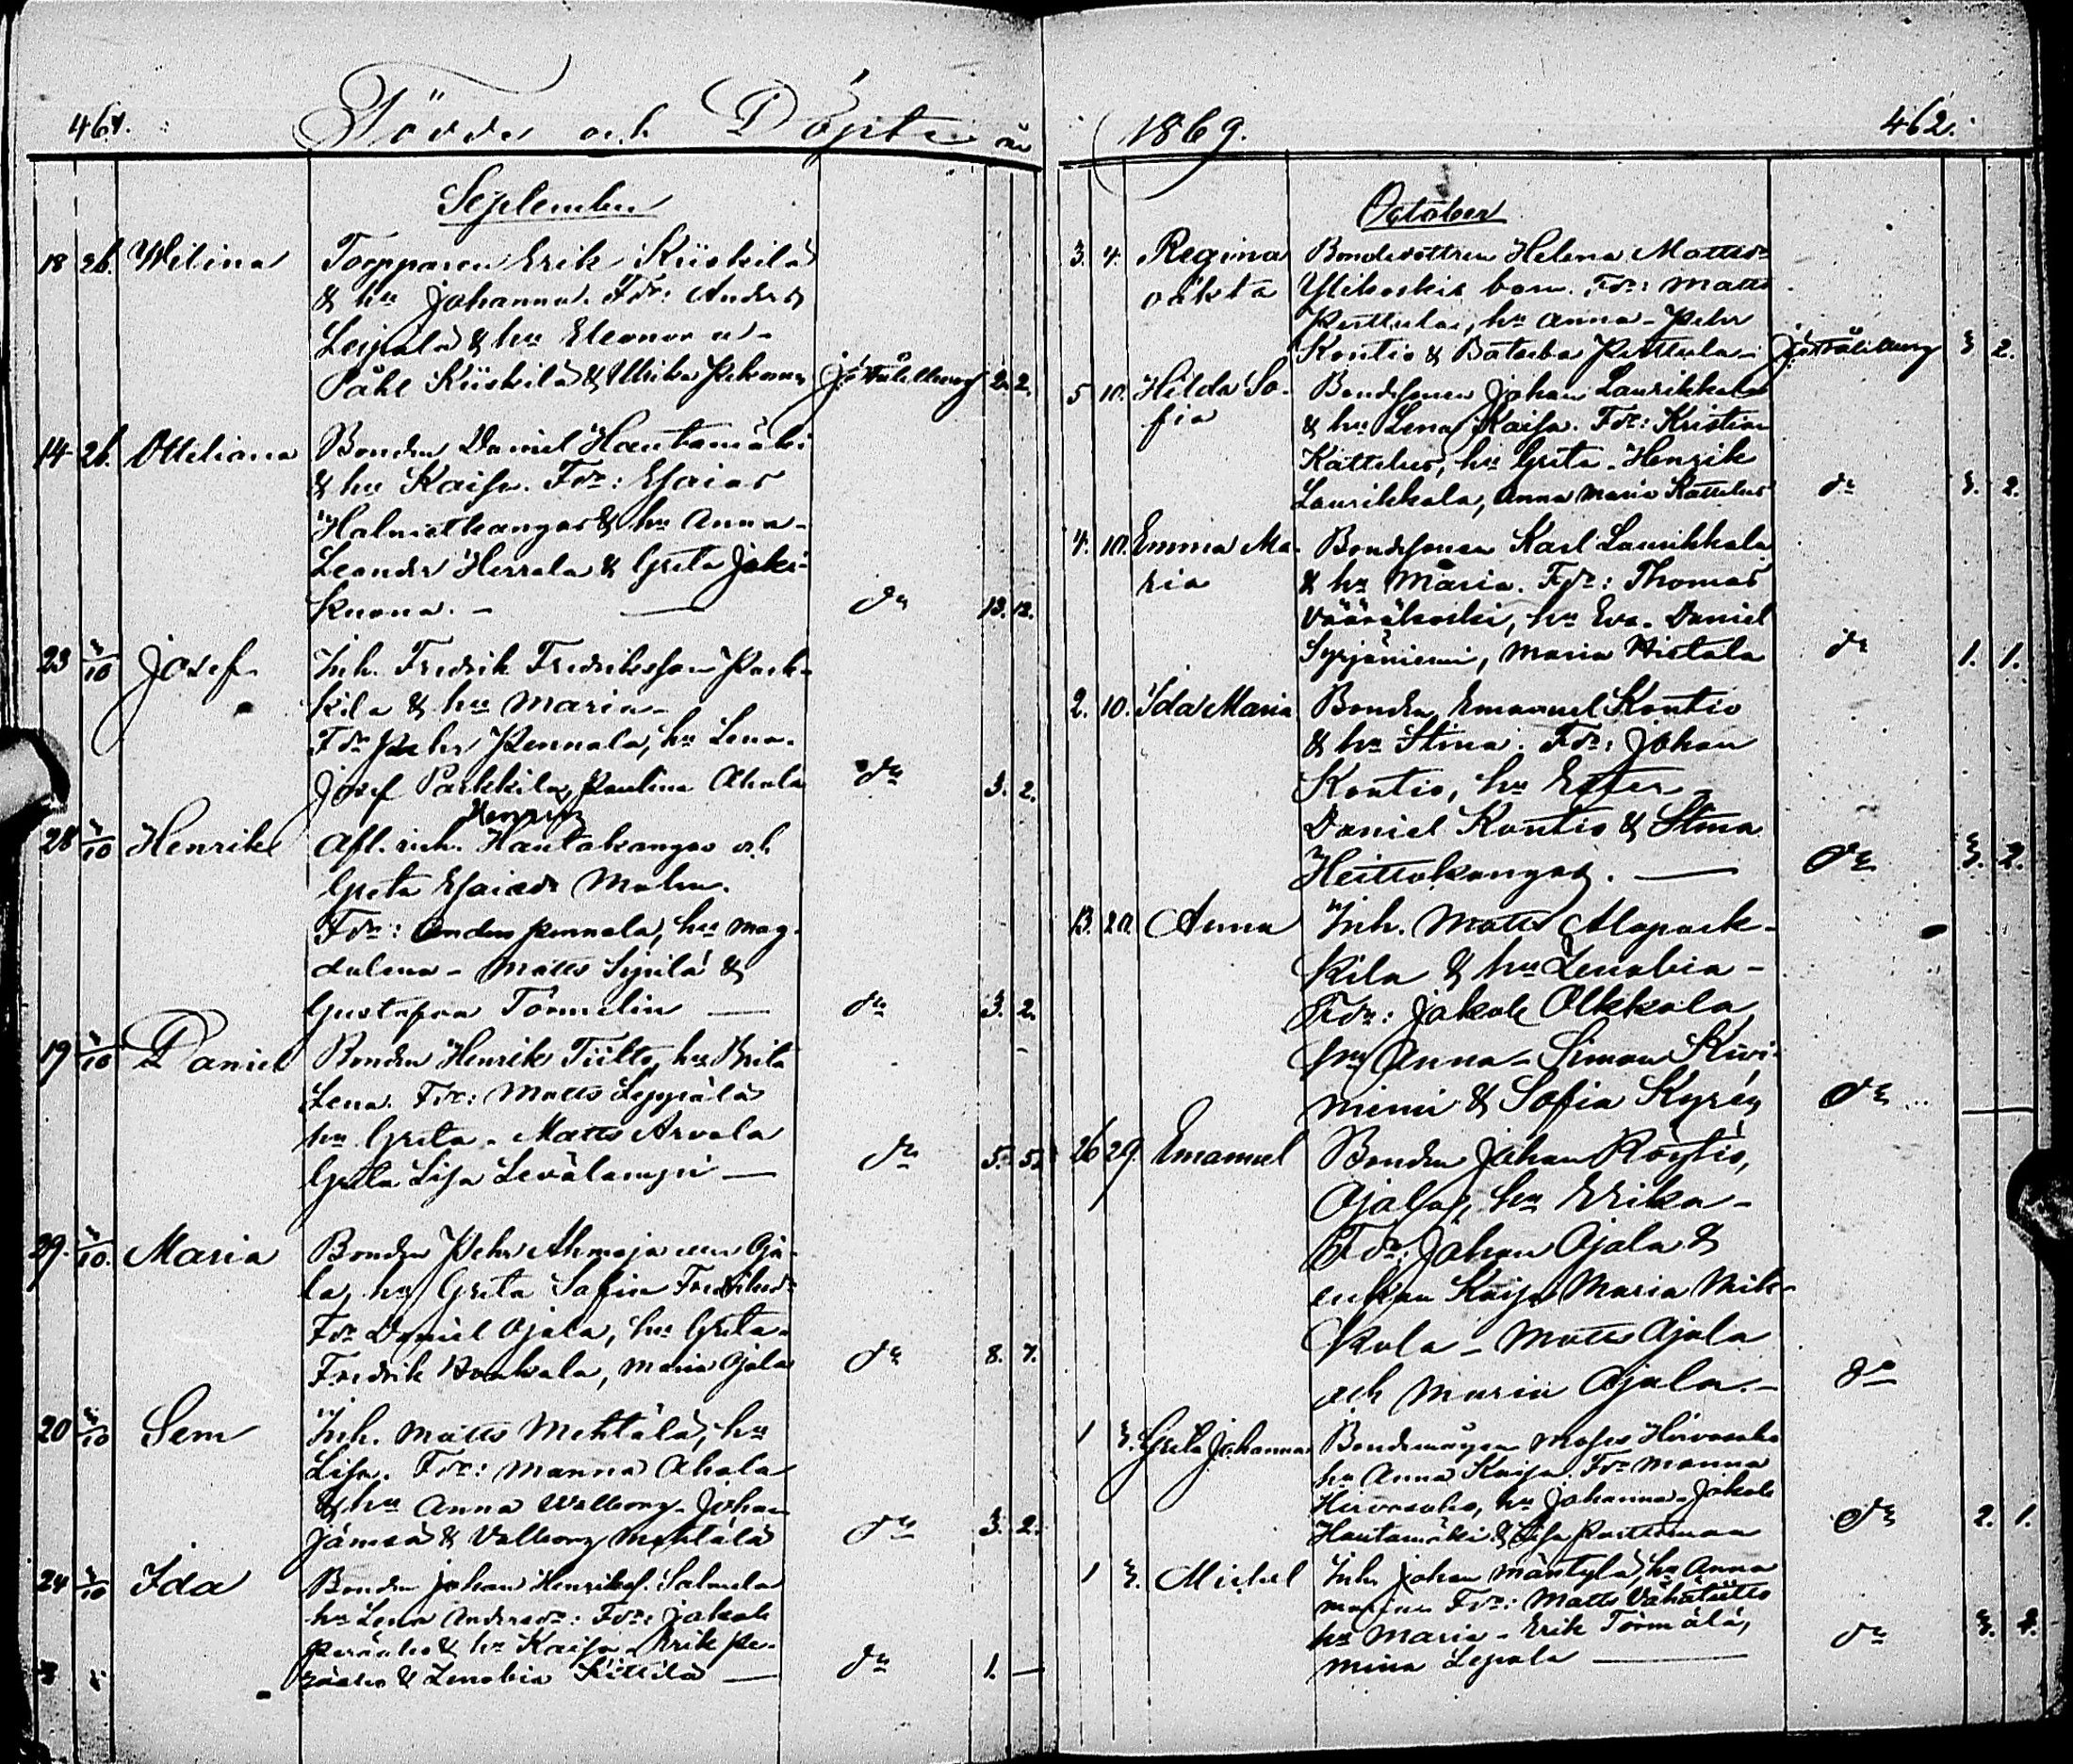 461.
Födde och Döpte år
September
18 26. Wilina Torpparen Erik Kiiskilä
& hu Johanna. Fdr: Anders
Lepälä & hu Eleonora -
Påhl Kiiskilä & Ulrika Pekanen 2. 2.
14 26. Otteliana Bonden Daniel Hautamäki
& hu Kaisa. Fdr: Esaias
Halmetkangas & hu Anna -
Leander Herrala & Greta Joki-
kuona. — dn 13. 12.
23 /10 Josef Inh. Fredrik Fredriksson Park-
kila & hu Maria -
Fdr Pehr Pennala, hu Lena.
Josef Parkkila, Paulina Ahola dn 3. 2.
28 /10 Henrik Afl. inh. Henrik Hautakangas och
Greta Esaiadr Malm.
Fdr: Anders Pennala, hu Mag-
dalena - Matts Sipilä &
Gustafva Törmelin — dn 3. 2.
19 /10 Daniel Bonden Henrik Tiitto, hu Brita
Lena. Fdr: Matts Leppälä
hu Greta - Matts Arvola
Greta Lisa Levälampi — dn 5. 5.
29. /10. Maria Bonden Pehr Ahmaja Oja-
la, hu Greta Sofia Fredriksdr
Fdr Daniel Ojala, hu Greta -
Fredrik Honkala, Maria Ojala dn 8. 7.
20 /10 Sem Inh. Matts Mehtälä, hu
Lisa. Fdr: Manna Ahola
& hu Anna Wallborg - Johan
Jämsä & Vallborg Mehtälä dn 3. 2.
24 /10 Ida Bonden Johan Henriks. Salmela
hu Lena Andersdr: Fdr: Jakob
Peräaho & hu Kaisa - Erik Pe-
räaho & Zenobia Kittilä — dn 1. —
1869. 462.
October
3. 4. Regina Bondedottren Helena Mattsdr
oäkta Ylikoskis barn. Fdr: Matts
Perttula, hu Anna - Pehr
Kontio & Batseba Perttula - 3 2.
5 10. Hilda So- Bondesonen Johan Laurikkala
fia & hu Lena Kaisa. Fdr: Kristian
Kattelus, hu Greta - Henrik
Laurikkala, Anna Maria Kattelus dn 3. 2.
4. 10. Emma Ma- Bondesonen Karl Laurikkala
ria & hu Maria. Fdr: Thomas
Vääräkoski, hu Eva - Daniel
Syrjäniemi, Maria Hietala dn 1. 1.
2. 10. Ida Maria Bonden Emanuel Kontio
& hu Stina. Fdr: Johan
Kontio, hu Ester -
Daniel Kontio & Stina
Heittokangas. — dn 3. 2.
13. 20. Anna Inh. Matts Alapark-
kila & hu Zenobia -
Fdr: Jakob Olkkola
hu Anna - Simon Kivi-
nimi & Sofia Kyrén dn
26 29. Emanuel Bonden Johan Röytiö,
Ojala, hu Erika -
Fdr: Johan Ojala &
enkan Kaisa Maria Mik-
kola - Matts Ojala
och Maria Ojala. - dn
1 3. Greta Johanna Bondemågen Moses Hirvasaho
hu Anna Kaisa. Fdr Manna
Hirvasaho, hu Johanna - Jakob
Hautamäki & Lisa dn 2. 1.
1 3. Michel Inh. Johan Mäntylä, hu Anna
Maria. Fdr: Matts Vähätiitto
hu Maria - Erik Törmälä,
Mina Lepola — dn 3. 2.